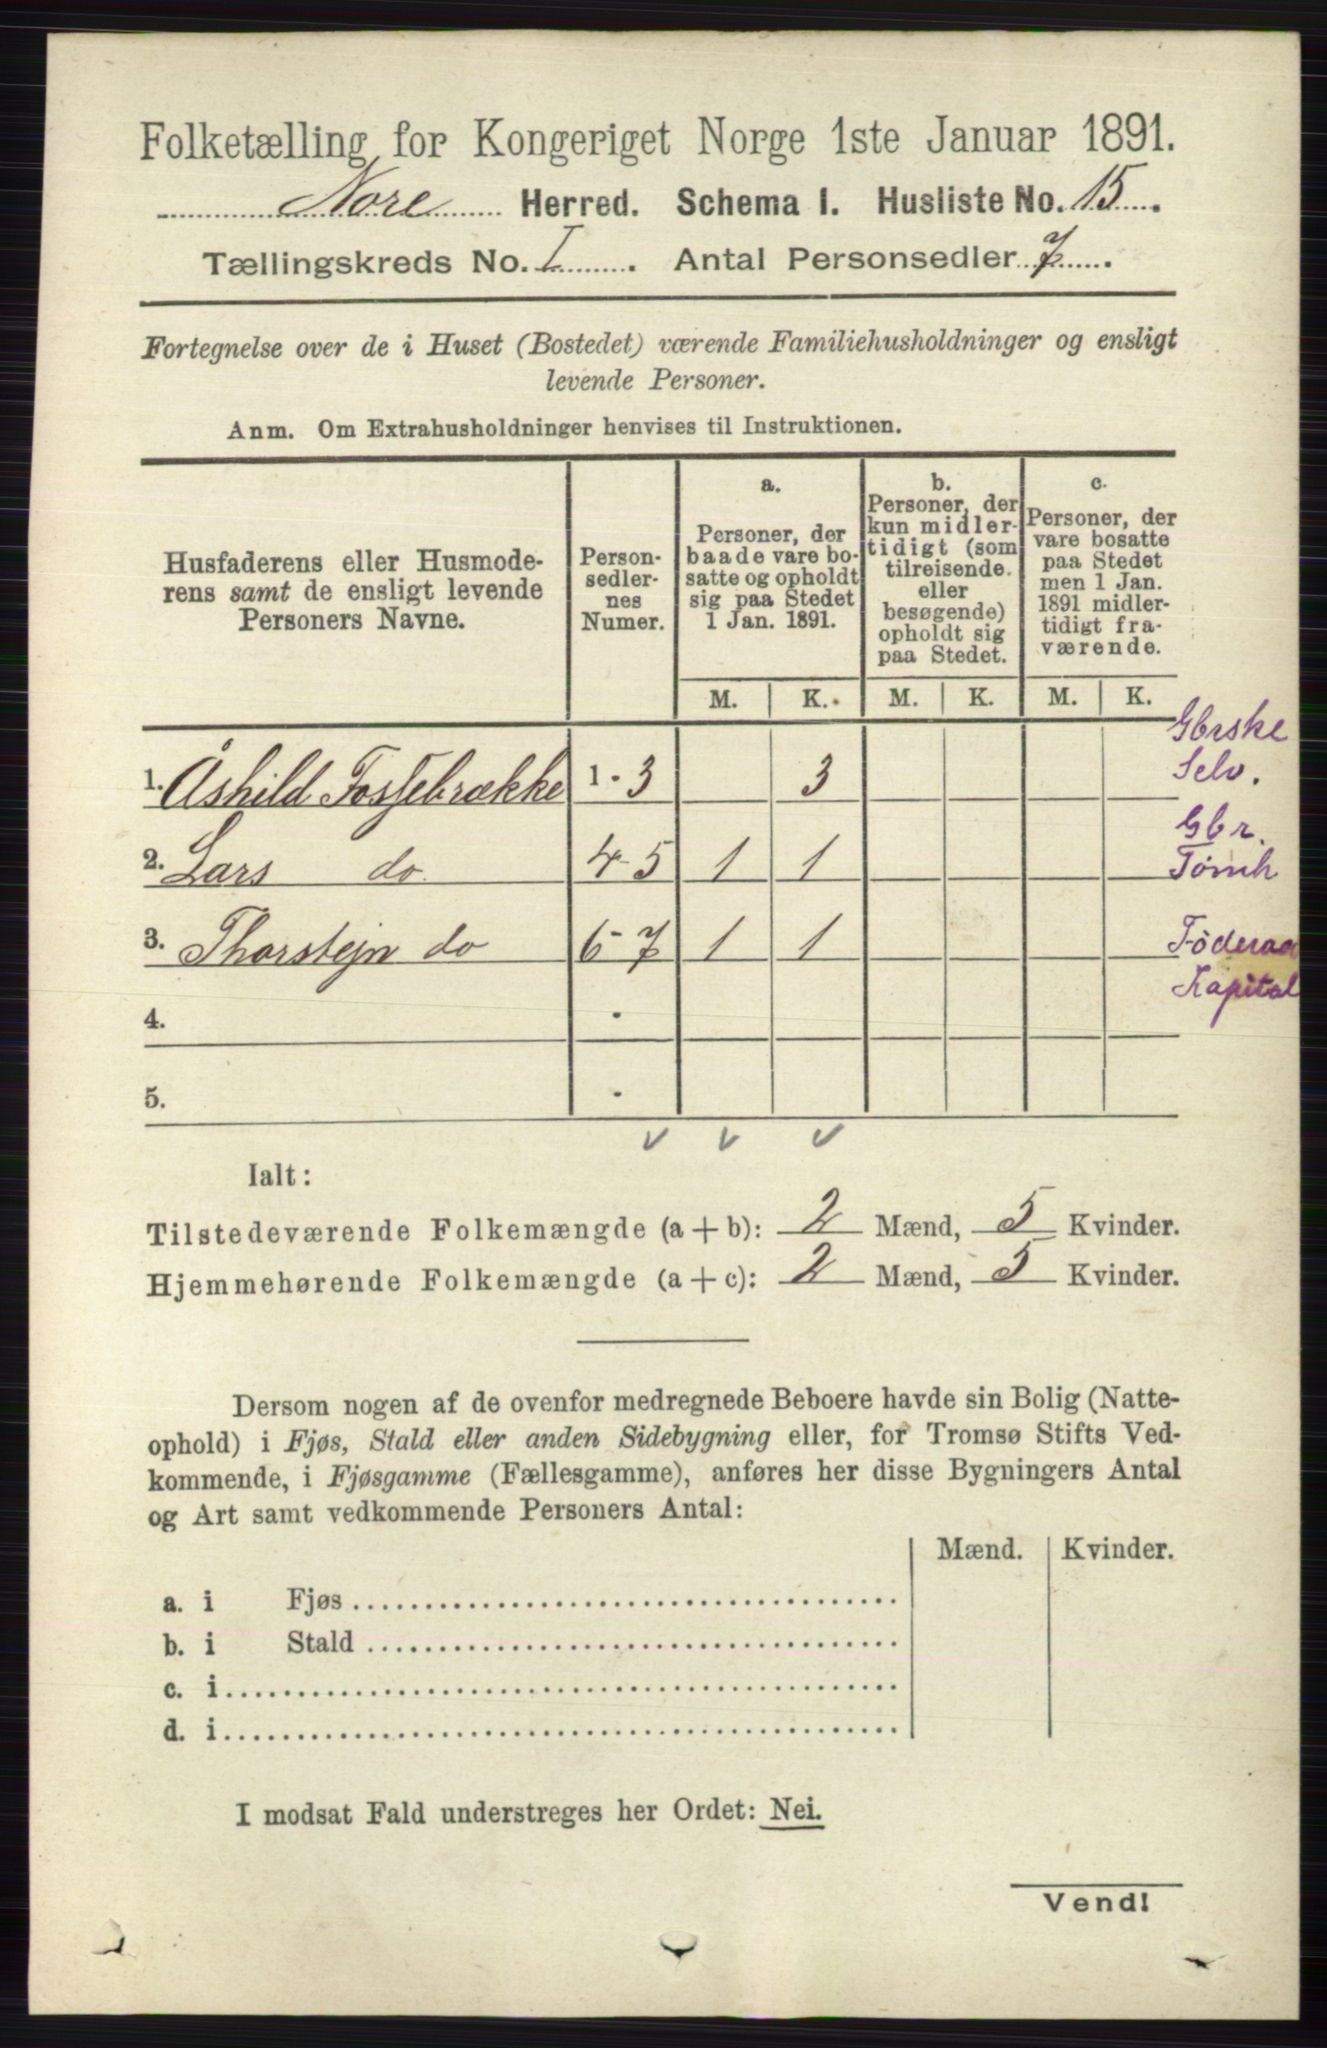 Folketælling for Kongeriget Norge 1ste Januar 1891.
Nore Herred. Schema I. Husliste No. 15.
Tællingskreds No. I. Antal Personsedler 7.
Fortegnelse over de i Huset (Bostedet) værende Familiehusholdninger og ensligt
levende Personer.
Anm. Om Extrahusholdninger henvises til Instruktionen.
Husfaderens eller Husmode-
rens samt de ensligt levende
Personers Navne.
Person-
sedler-
nes
Numer.
a.
Personer, der
baade vare bo-
satte og opholdt
sig paa Stedet
1 Jan. 1891.
b.
Personer, der
kun midler-
tidigt (som
tilreisende
eller
besøgende)
opholdt sig
paa Stedet.
c.
Personer, der
vare bosatte
paa Stedet
men 1 Jan.
1891 midler-
tidigt fra-
værende.
M. K. M. K. M. K.
1. Åshild Fossebrække 1-3 3 Gbrske
Selv.
2. Lars do 4-5 1 1 Gbr.
Tømh
3. Thorstejn do 6-7 1 1 Føderaa
Kapital
4. -
5. -
Ialt:
Tilstedeværende Folkemængde (a + b): 2 Mænd, 5 Kvinder.
Hjemmehørende Folkemængde (a + c): 2 Mænd, 5 Kvinder.
Dersom nogen af de ovenfor medregnede Beboere havde sin Bolig (Natte-
ophold) i Fjøs, Stald eller anden Sidebygning eller, for Tromsø Stifts Ved-
kommende, i Fjøsgamme (Fællesgamme), anføres her disse Bygningers Antal
og Art samt vedkommende Personers Antal:
Mænd. Kvinder.
a. i Fjøs
b. i Stald
c. i
d. i
I modsat Fald understreges her Ordet: Nei.
Vend!